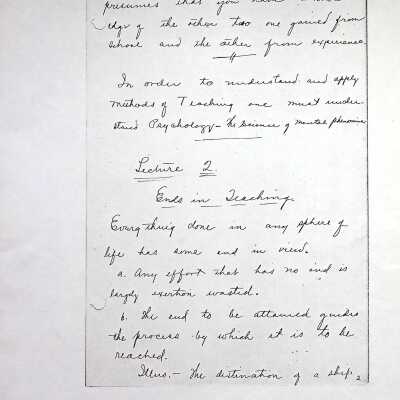 presumes that you have
edge of the other two one gained from
school and the other from experience.
In order to understand and apply
methods of Teaching one must under-
stand Psychology - The science of mental phenomena
Lecture 2.
Ends in Teaching
Everything done in any sphere of
life has some end in view.
a. Any effort that has no end is
largely exertion wasted.
b. The end to be attained guides
the process by which it is to be
reached.
Illus. - The distination of a ship
2